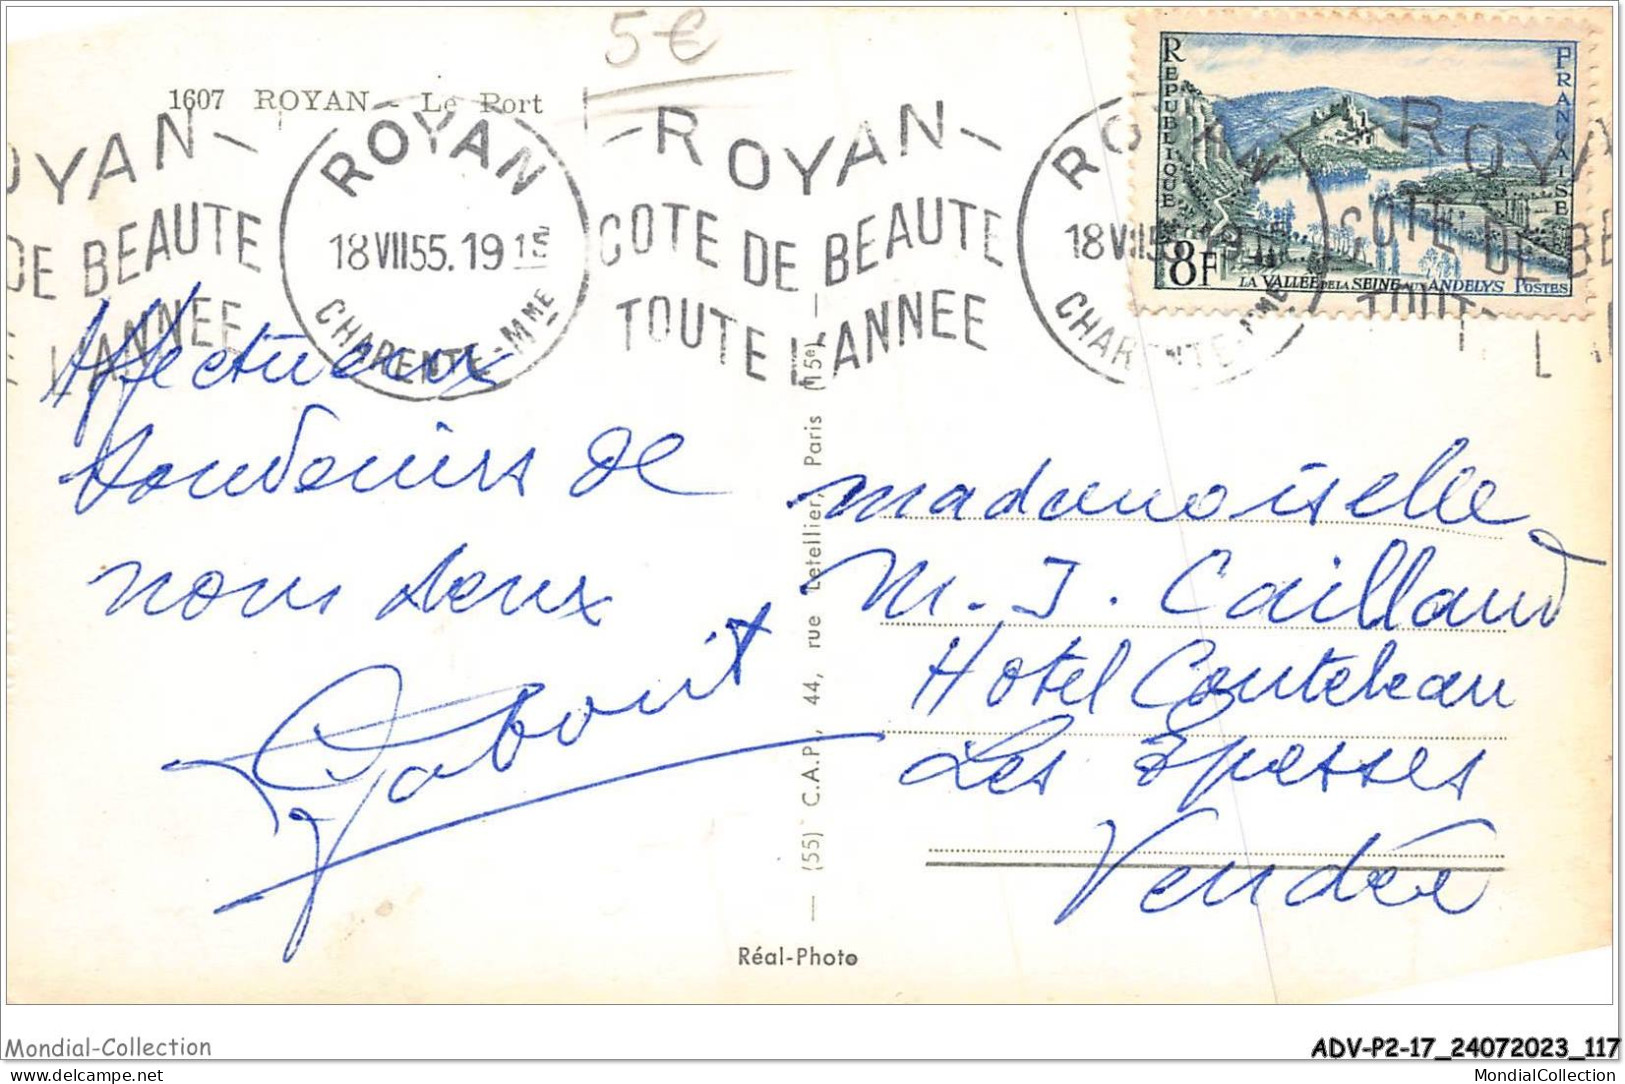 5€
1607 ROYAN - Le Port
ROYAN
DE BEAUTE
L'ANNEE
ROYAN
18 VII 55. 19 15
CHARENTE-MME
-ROYAN-
COTE DE BEAUTE
TOUTE L'ANNEE
ROYAN
18 VII 55
CHARENTE-MME
ROYA
COTE DE BE
TOUT
L
REPUBLIQUE
FRANCAISE
8F
LA VALLÉE DE LA SEINE AUX ANDELYS POSTES
Affectueux
souvenirs de
nous deux
Mademoiselle
M. J. Caillaud
Hotel Couteleau
Les Epesses
Vendée
(55) C.A.P., 44, rue Letellier, Paris (15e)
Réal-Photo
Mondial-Collection
ADV-P2-17_24072023_117
delcampe.net
MondialCollection